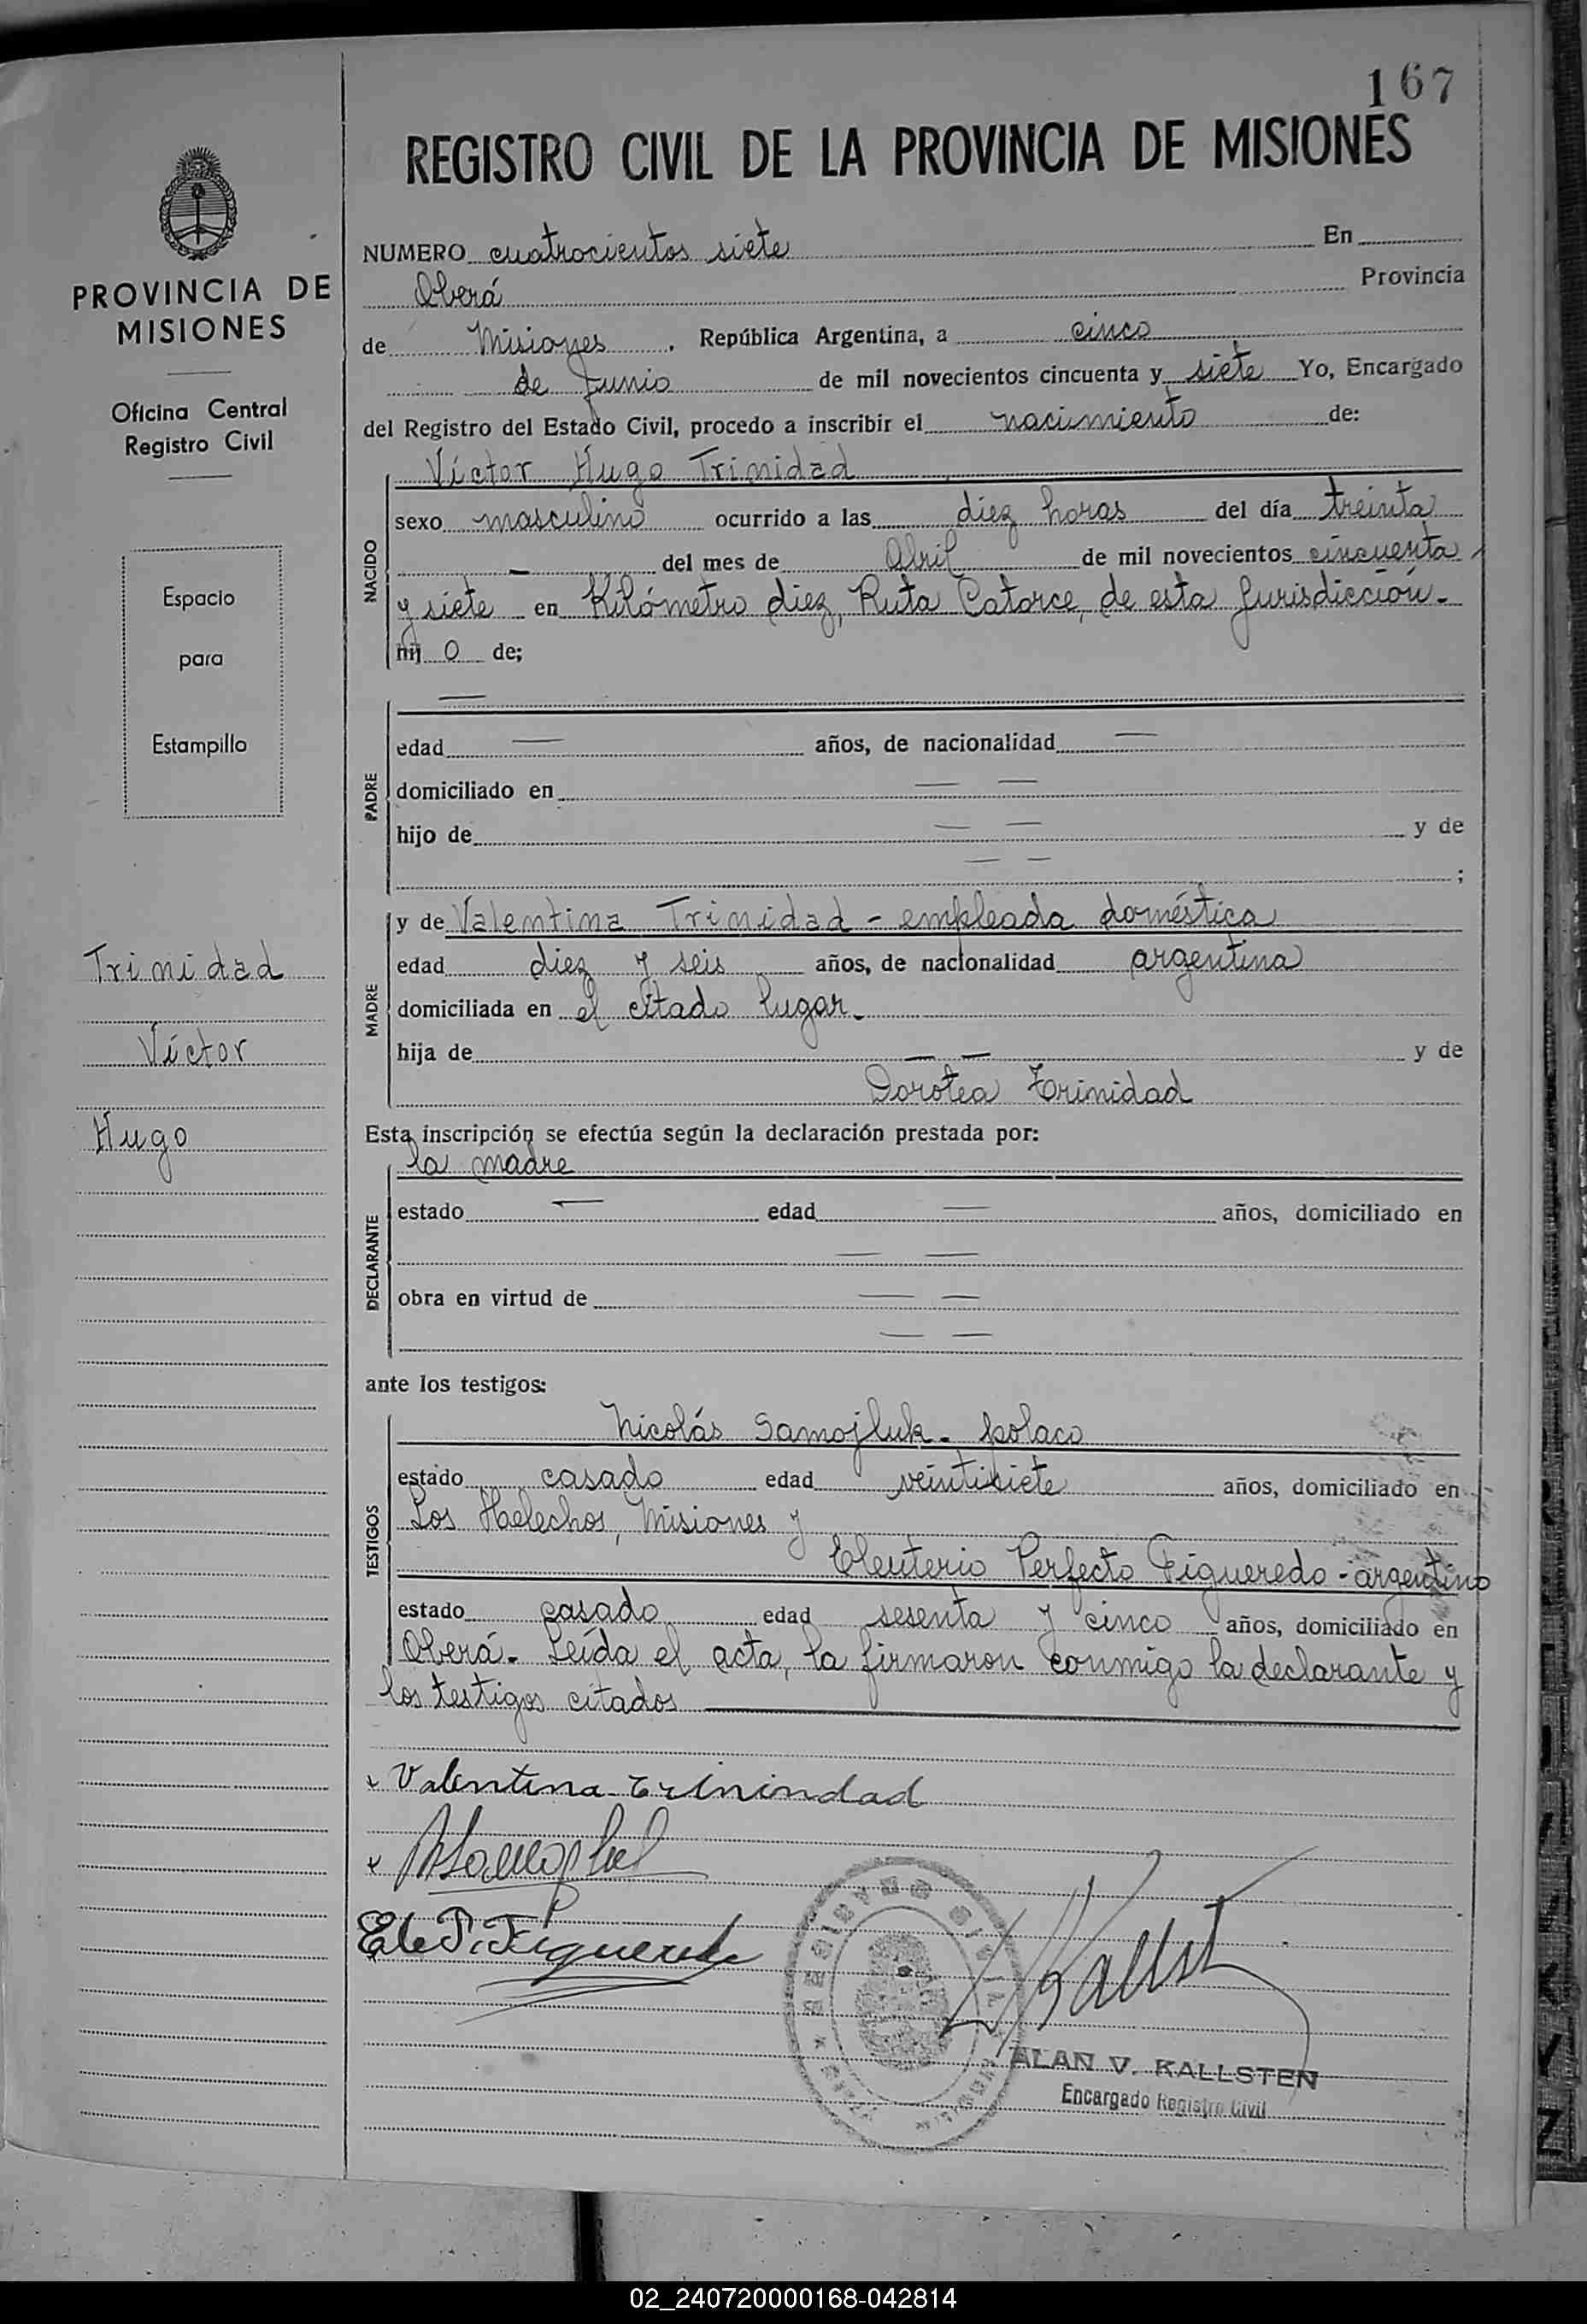 167
REGISTRO CIVIL DE LA PROVINCIA DE MISIONES
PROVINCIA DE
MISIONES
Oficina Central
Registro Civil
Espacio
para
Estampillo
Trinidad
Víctor
Hugo
NUMERO cuatrocientos siete En
Oberá Provincia
de Misiones, República Argentina, a cinco
de Junio de mil novecientos cincuenta y siete Yo, Encargado
del Registro del Estado Civil, procedo a inscribir el nacimiento de:
Víctor Hugo Trinidad
NACIDO
sexo masculino ocurrido a las diez horas del día treinta
— del mes de Abril de mil novecientos cincuenta
y siete en Kilómetro diez, Ruta Catorce, de esta Jurisdicción.
hij o de;
—
PADRE
edad — años, de nacionalidad —
domiciliado en — —
hijo de — — y de
— — ;
y de Valentina Trinidad - empleada doméstica
MADRE
edad diez y seis años, de nacionalidad argentina
domiciliada en el citado lugar.
hija de — — y de
Dorotea Trinidad
Esta inscripción se efectúa según la declaración prestada por:
la madre
DECLARANTE
estado — edad — años, domiciliado en
— —
obra en virtud de — —
— —
ante los testigos:
Nicolás Samojluk - polaco
TESTIGOS
estado casado edad veintisiete años, domiciliado en
Los Helechos, Misiones y
Eleuterio Perfecto Figueredo - argentino
estado casado edad sesenta y cinco años, domiciliado en
Oberá. Leída el acta, la firmaron conmigo la declarante y
los testigos citados
x Valentina Trinindad
x
Ele P. Figueredo
ALAN V. KALLSTEN
Encargado Registro Civil
02_240720000168-042814